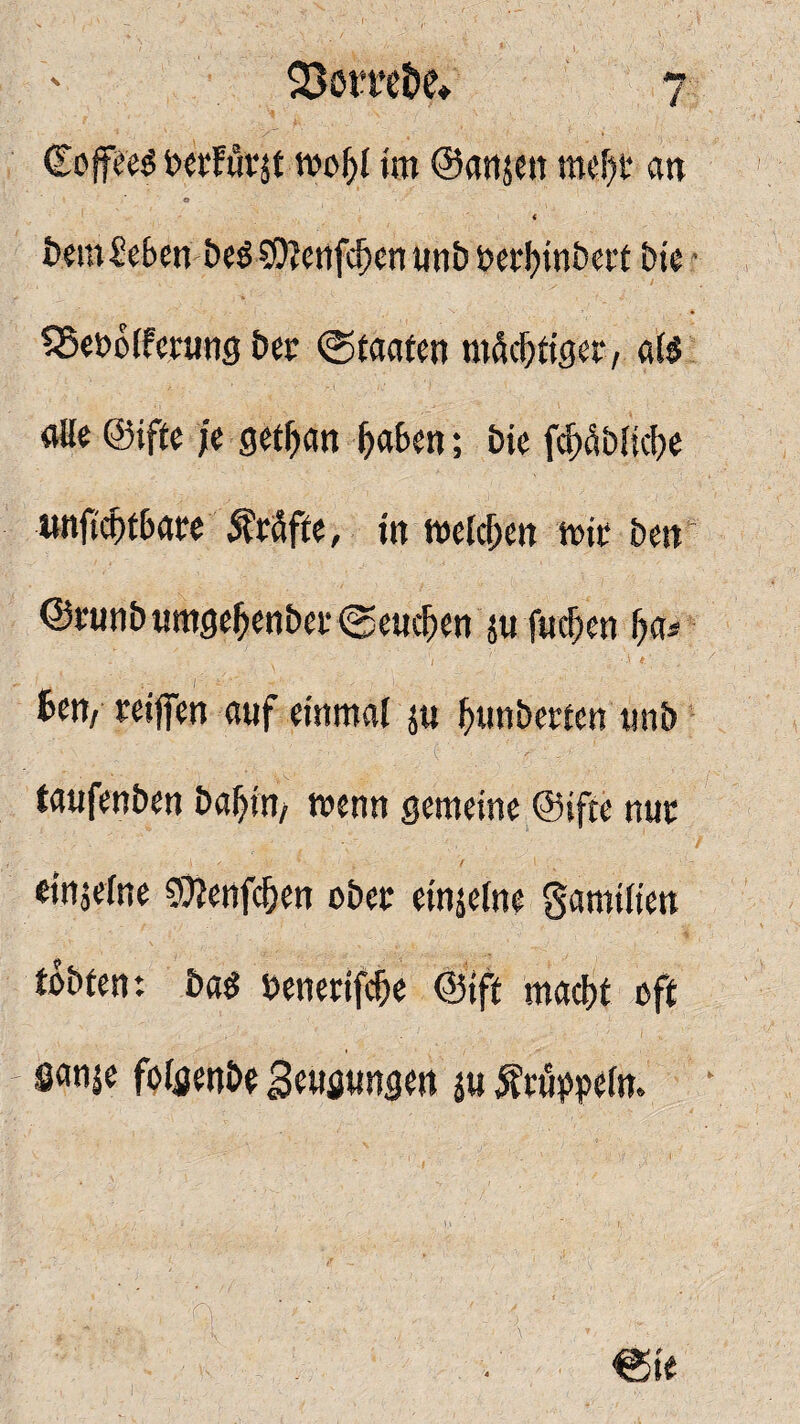 Vorrede. 7
Coffees verkürzt wohl im Ganzen mehr an
dem Leben des Menschen und verhindert die
Bevölkerung der Staaten mächtiger, als
alle Gifte je gethan haben; die schädliche
unsichtbare Kräfte, in welchen wir den
Grund umgehender Seuchen zu suchen ha-
ben, reissen auf einmal zu hunderten und
tausenden dahin, wenn gemeine Gifte nur
einzelne Menschen oder einzelne Familien
tödten: das venerische Gift macht oft
ganze folgende Zeugungen zu Krüppeln.
Sie